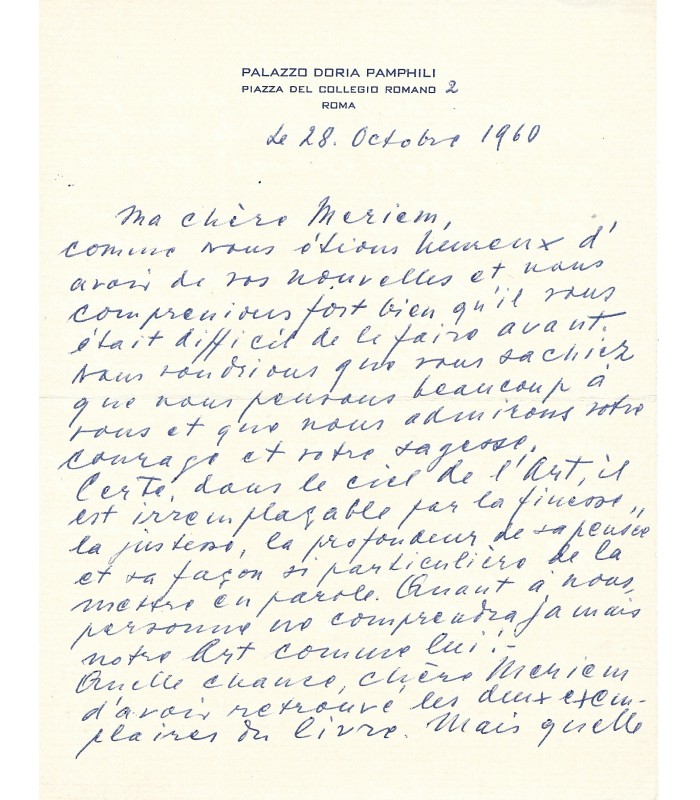 PALAZZO DORIA PAMPHILI
PIAZZA DEL COLLEGIO ROMANO 2
ROMA
Le 28. Octobre 1960
Ma chère Meriem,
comme nous étions heureux d'
avoir de vos nouvelles et nous
comprenions fort bien qu'il vous
était difficil de le faire avant.
Nous voudrions que vous sachiez
que nous pensons beaucoup à
vous et que nous admirons votre
courage et votre sagesse.
Certe, dans le ciel de l'Art, il
est irremplaçable par la finesse,
la justesse, la profondeur de sa pensée
et sa façon si particulière de la
mettre en parole. Quant à nous,
personne ne comprendra jamais
notre Art comme lui! -
Quelle chance, chère Meriem
d'avoir retrouvé les deux exem-
plaires du livre. Mais quelle